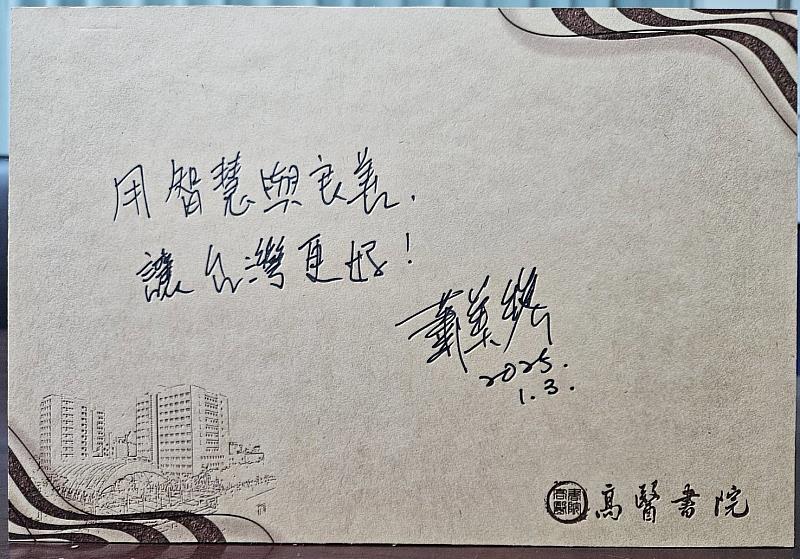 用智慧與良善.
讓台灣更好!
蕭美琴
2025.
1.3.
高醫書院
高醫書院